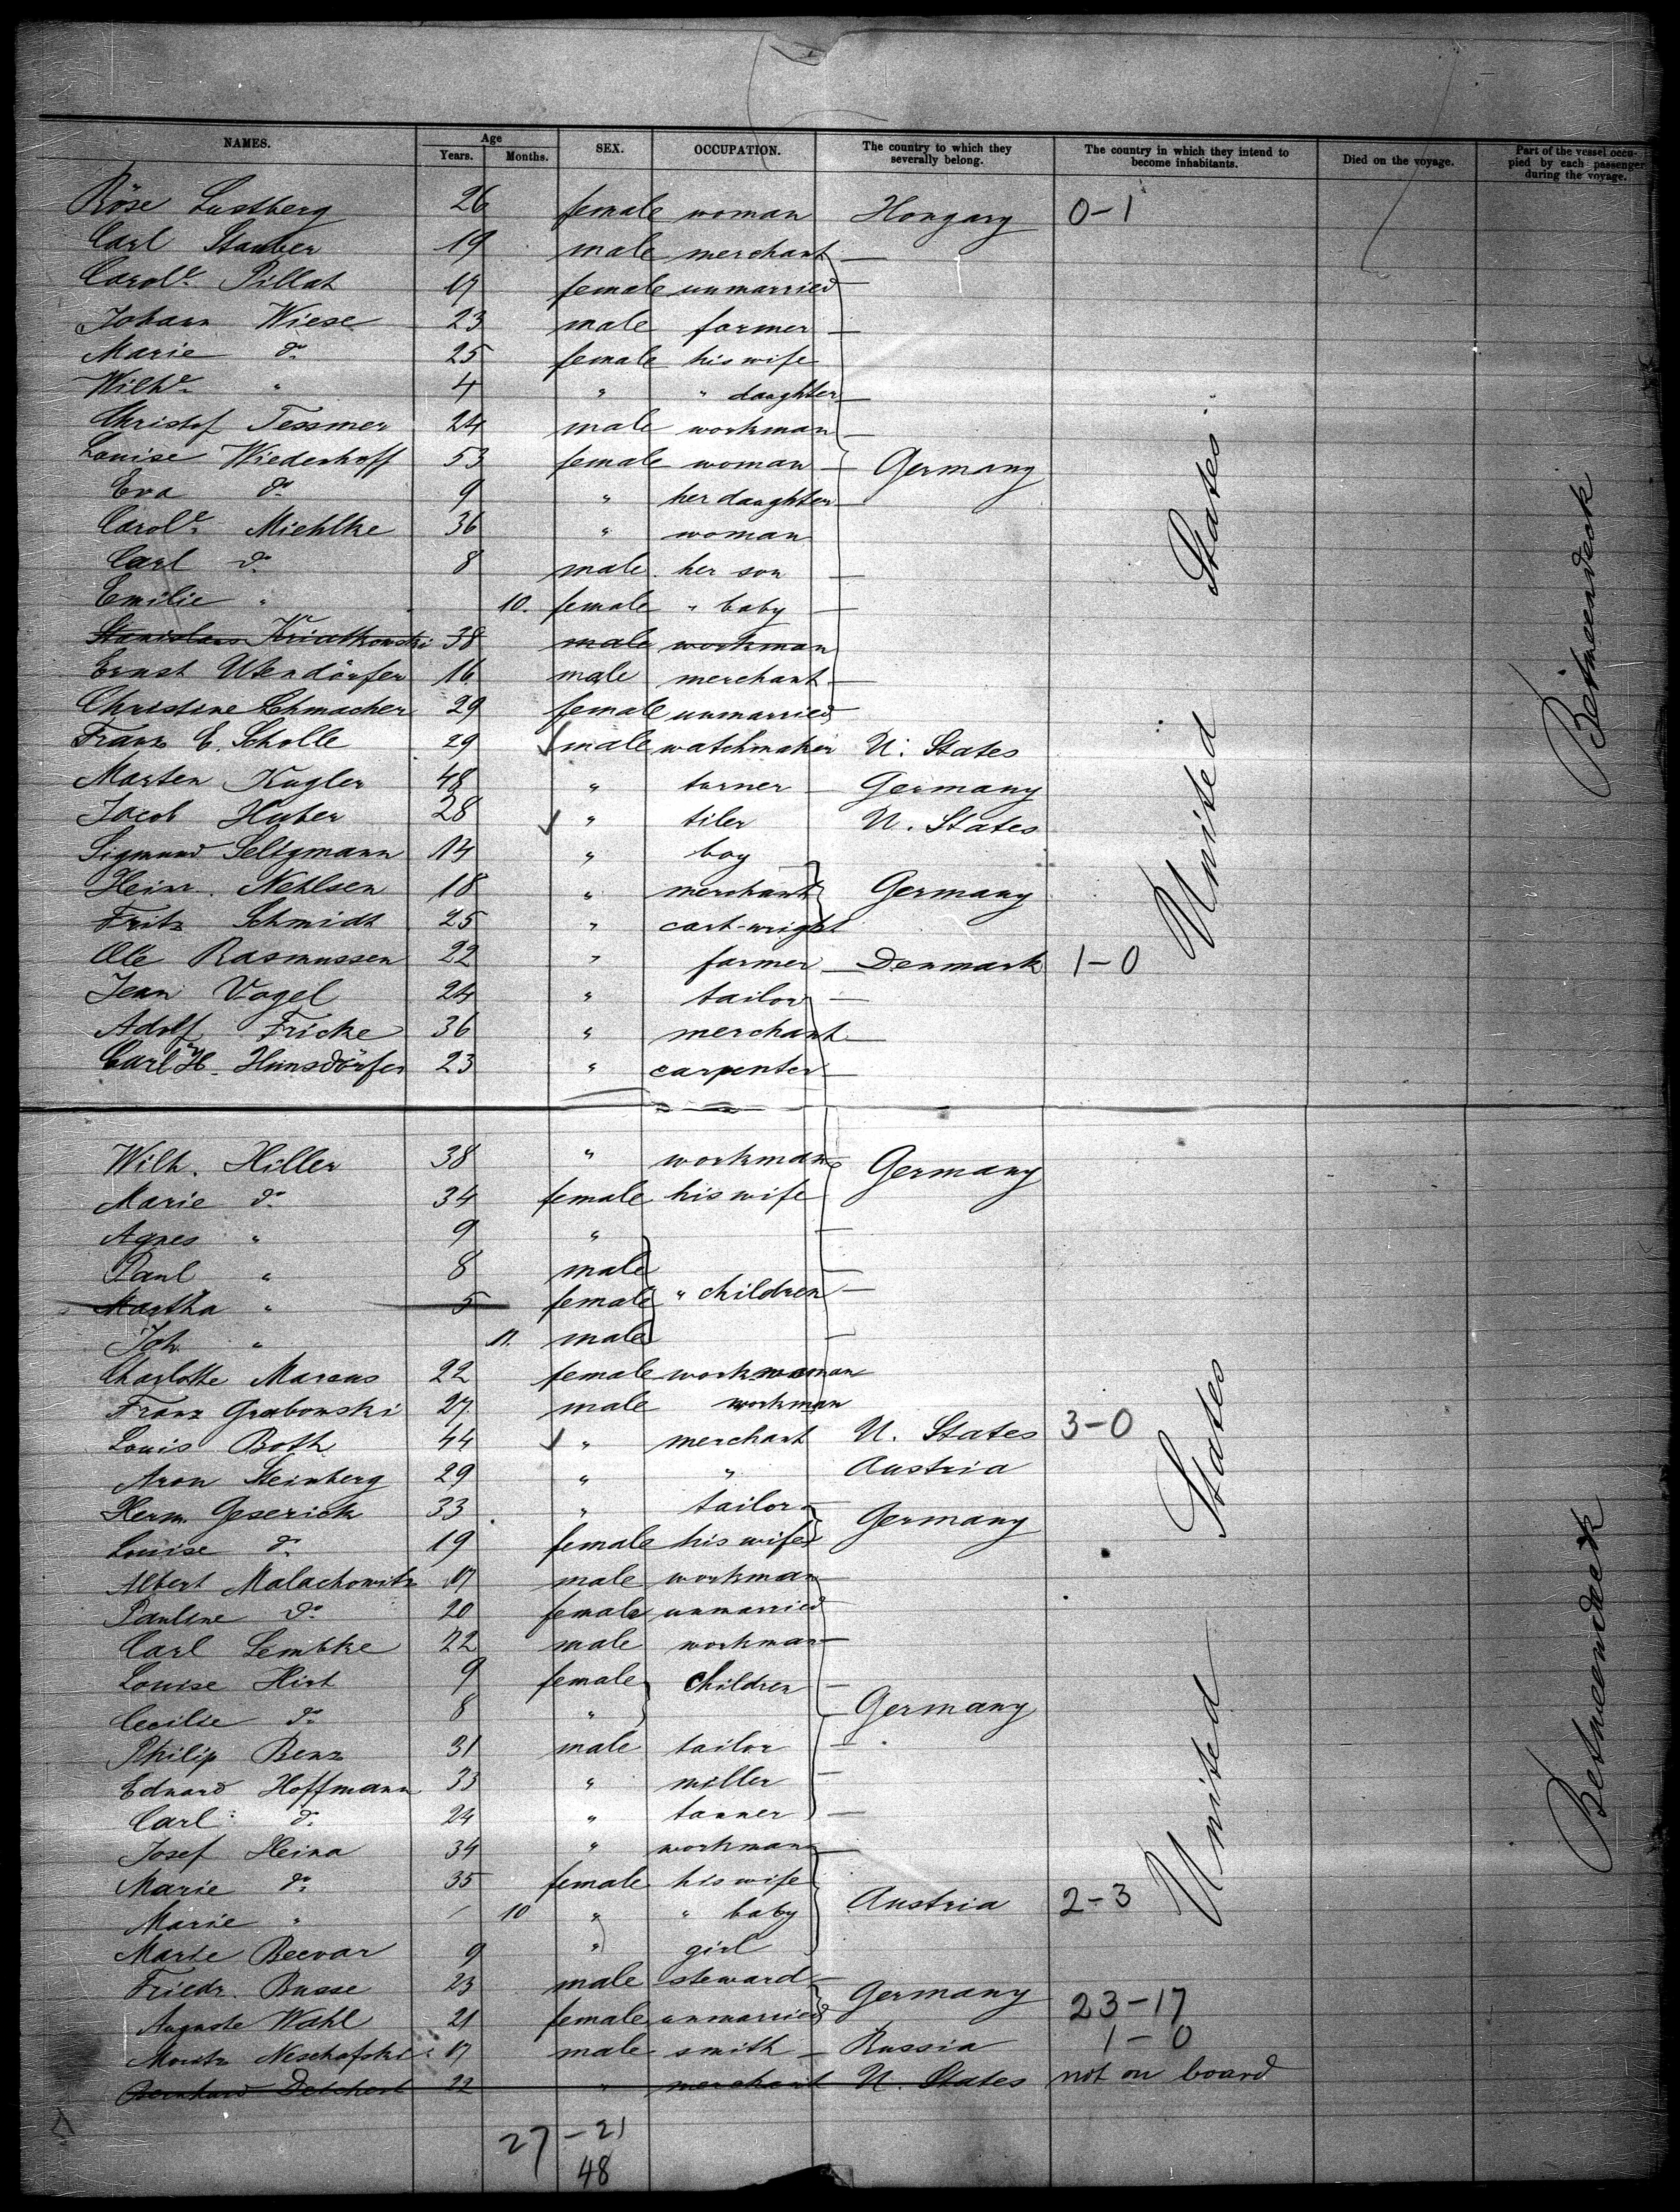 NAMES. Age Years. Months. SEX. OCCUPATION. The country to which they severally belong. The country in which they intend to become inhabitants. Died on the voyage. Part of the vessel occupied by each passenger during the voyage.
Röse Lustberg 26 female woman Hongary 0-1
Carl Stauber 19 male merchant —
Carole. Pillat 17 female unmarried —
Johann Wiese 23 male farmer —
Marie do. 25 female his wife
Wilhe. " 4 " " daughter —
Christof Tessmer 24 male workman —
Louise Wiederhoff 53 female woman — Germany
Eva do. 9 " her daughter —
Carole. Miehlke 36 " woman
Carl do. 8 male her son —
Emilie " 10. female " baby —
Stanislaus Kwiatkowski 38 male workman
Ernst Utendörfer 16 male merchant —
Christine Schmacher 29 female unmarried
Franz E. Scholle 29 male watchmaker U. States
Marten Kugler 48 " turner — Germany
Jacob Huber 28 " tiler U. States
Sigmund Seligmann 14 " boy
Heinr. Nehlsen 18 " merchant Germany
Fritz Schmidt 25 " cart-wright
Ole Rasmussen 22 " farmer — Denmark 1-0
Jean Vogel 24 " tailor —
Adolf Fricke 36 " merchant —
Carl H. Hunsdörfer 23 " carpenter —
United States
Betweendeck
Wilh. Hiller 38 " workman Germany
Marie do. 34 female his wife
Agnes " 9 " —
Paul " 8 male —
Martha " 5 female " children —
Joh. " 11. male —
Charlotte Marcus 22 female workwoman
Franz Grabowski 27 male workman
Louis Both 44 " merchant U. States 3-0
Aron Steinberg 29 " " Austria
Herm. Geserick 33 " tailor Germany
Louise do. 19 female his wife
Albert Malachowitz 17 male workman
Pauline do. 20 female unmarried
Carl Lembke 22 male workman
Louise Hirt 9 female children —
Cecilie do. 8 " Germany
Philip Benz 31 male tailor —
Eduard Hoffmann 33 " miller —
Carl do. 24 " tanner —
Josef Heina 34 " workman —
Marie do. 35 female his wife
Marie " / 10 " " baby Austria 2-3
Marie Becvar 9 " girl
Friedr. Busse 23 male steward —
Auguste Wahl 21 female unmarried Germany 23-17
Moritz Neschafski 17 male smith — Russia 1-0
Bernhard Detchert 22 " merchant U. States not on board
United States
Betweendeck
27 - 21
48